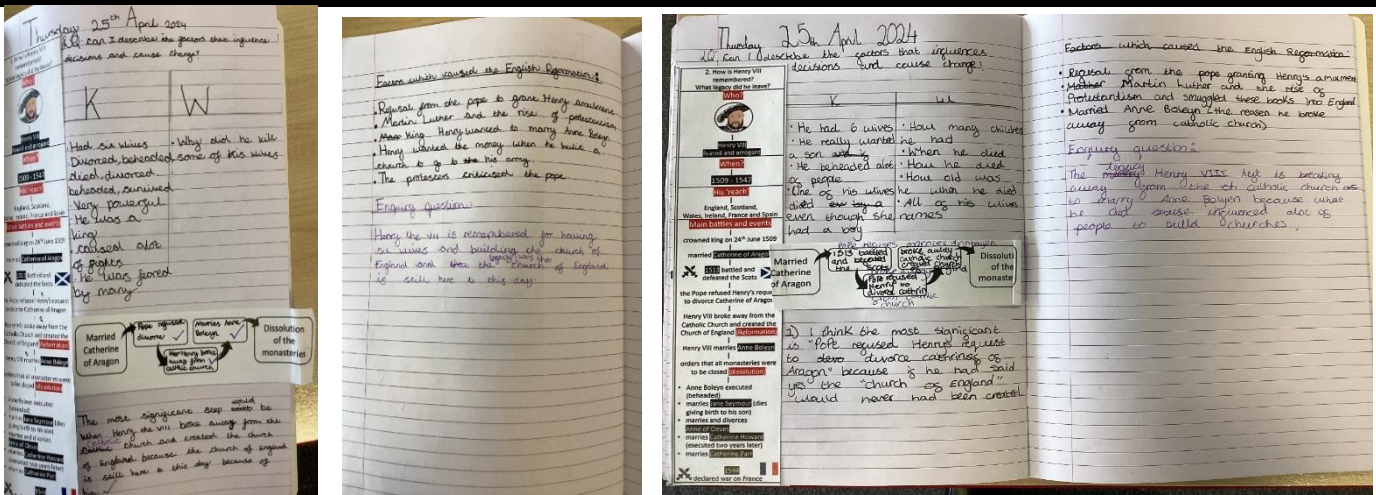 Thursday 25th April 2024
LQ: can I describe the factors that influence
decisions and cause change?
2. How is Henry VIII
remembered?
Who?
Henry VIII
feared and arrogant
When?
1509 - 1547
His 'reach'
England, Scotland,
Wales, Ireland, France and Spain
Main battles and events
crowned king on 24th June 1509
married Catherine of Aragon
1513 battled and
defeated the Scots
the Pope refused Henry's request
to divorce Catherine of Aragon
Henry VIII broke away from the
Catholic Church and created the
Church of England (Reformation)
Henry VIII marries Anne Boleyn
orders that all monasteries were
to be closed (dissolution)
Anne Boleyn executed
(beheaded)
K
W
Had six wives
Divorced, beheaded,
died, divorced,
beheaded, survived
Very powerful
He was a
king
caused alot
of fights
he was feared
by many
Why did he kill
some of his wives
Married
Catherine
of Aragon
Pope refused
divorce
Henry broke
away from
catholic church
Marries Anne
Boleyn
Dissolution
of the
monasteries
The most significant step would be
when Henry the VIII broke away from the
catholic church and created the church
of England because the church of England
is still here to this day because of
Factors which caused the English Reformation:
• Refusal from the pope to grant Henry
• Martin Luther and the rise of protestantism
• King Henry wanted to marry Anne Boleyn
• Henry wanted the money when he built a
church to go to his army.
• The protesters criticised the pope.
Enquiry Question
Henry the VIII is remembered for having
six wives and building the church of
England and legacy was the church of England
is still here to this day.
Thursday 25th April 2024
LQ: Can I describe the factors that influences
decisions and cause change?
2. How is Henry VIII
remembered?
What legacy did he leave?
Who?
Henry VIII
feared and arrogant
When?
1509 - 1547
His 'reach'
England, Scotland,
Wales, Ireland, France and Spain
Main battles and events
crowned king on 24th June 1509
married Catherine of Aragon
1513 battled and
defeated the Scots
the Pope refused Henry's reque
to divorce Catherine of Aragon
Henry VIII broke away from the
Catholic Church and created the
Church of England (Reformation)
Henry VIII marries Anne Boleyn
orders that all monasteries were
to be closed (dissolution)
• Anne Boleyn executed
(beheaded)
• marries Jane Seymour (dies
giving birth to his son)
• marries and divorces
Anne of Cleves
• marries Catherine Howard
(executed two years later)
• marries Catherine Parr
1544
declared war on France
K
W
• He had 6 wives
• He really wanted
a son
• He beheaded alot
of people
• One of his wives
died
even though she
had a boy
• How many children
he had
• When he died
• How he died
• How old was
he when he died
• All of his wives
names
Married
Catherine
of Aragon
Pope refused
Henry to
divorce
broke away
catholic church
created church
Dissoluti
of the
monaste
1) I think the most significant
is "Pope refused Henry's request
to divorce cathrine of
Aragon" because if he had said
yes the "church of England"
would never had been created.
Factors which caused the English Reformation:
• Refusal from the pope granting Henry's
• Martin Luther and the rise of
Protestantism and smuggled these books into England
• Married Anne Boleyn (the reason he broke
away from catholic church)
Enquiry question:
The legacy Henry VIII left is breaking
away from the catholic church
to marry Anne Boleyn because what
he did influenced alot of
people to build churches.